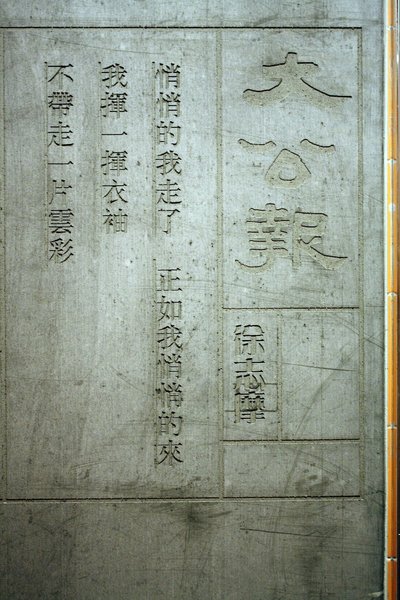 大公報
徐志摩
悄悄的我走了 正如我悄悄的來
我揮一揮衣袖
不帶走一片雲彩